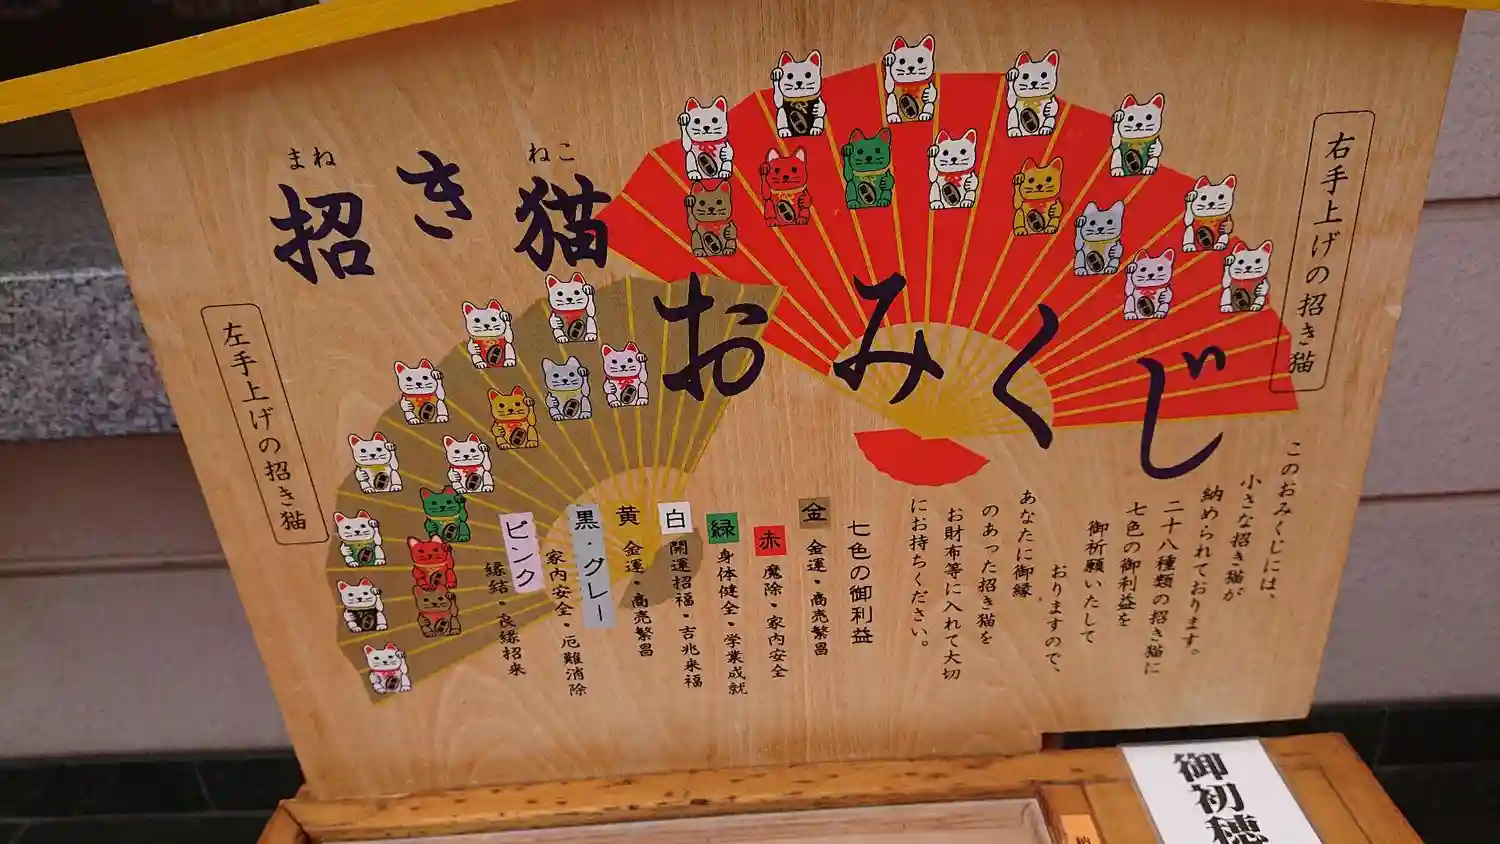 まね
ねこ
招き猫
おみくじ
右手上げの招き猫
左手上げの招き猫
このおみくじには、
小さな招き猫が
納められております。
二十八種類の招き猫に
七色の御利益を
御祈願いたして
おりますので、
あなたに御縁
のあった招き猫を
お財布等に入れて大切
にお持ちください。
七色の御利益
金 金運・商売繁昌
赤 魔除・家内安全
緑 身体健全・学業成就
白 開運招福・吉兆来福
黄 金運・商売繁昌
黒・グレー 家内安全・厄難消除
ピンク 縁結・良縁招来
御初穂